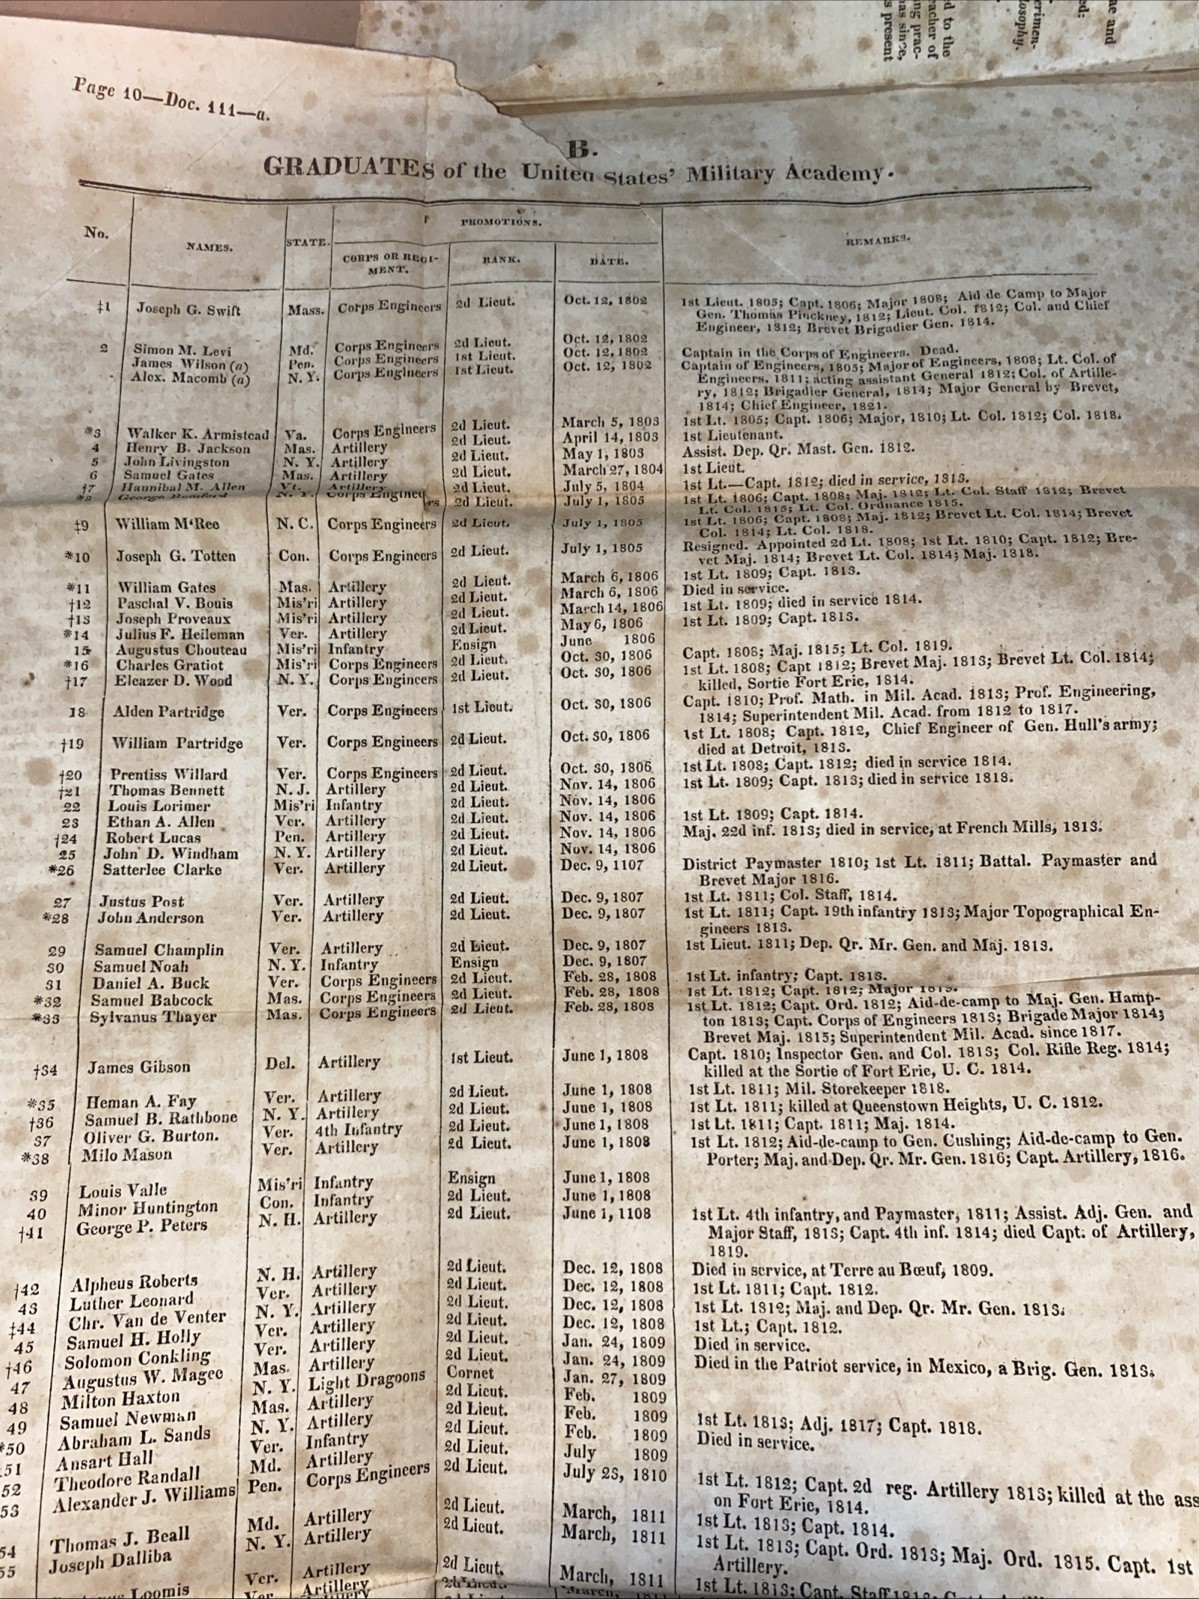 d to the
acher of
ng prac-
as since,
s present
erimen-
losophy.
ae and
ed:
Page 10—Doc. 111—a.
B.
GRADUATES of the United States' Military Academy.
No. NAMES. STATE. PROMOTIONS. REMARKS.
CORPS OR REGI-MENT. RANK. DATE.
‡1 Joseph G. Swift Mass. Corps Engineers 2d Lieut. Oct. 12, 1802 1st Lieut. 1805; Capt. 1806; Major 1808; Aid de Camp to Major
Gen. Thomas Pinckney, 1812; Lieut. Col. 1812; Col. and Chief
Engineer, 1812; Brevet Brigadier Gen. 1814.
2 Simon M. Levi Md. Corps Engineers 2d Lieut. Oct. 12, 1802 Captain in the Corps of Engineers. Dead.
James Wilson (a) Pen. Corps Engineers 1st Lieut. Oct. 12, 1802 Captain of Engineers, 1805; Major of Engineers, 1808; Lt. Col. of
Alex. Macomb (a) N. Y. Corps Engineers 1st Lieut. Oct. 12, 1802 Engineers, 1811; acting assistant General 1812; Col. of Artille-
ry, 1812; Brigadier General, 1814; Major General by Brevet,
1814; Chief Engineer, 1821.
*3 Walker K. Armistead Va. Corps Engineers 2d Lieut. March 5, 1803 1st Lt. 1805; Capt. 1806; Major, 1810; Lt. Col. 1812; Col. 1818.
4 Henry B. Jackson Mas. Artillery 2d Lieut. April 14, 1803 1st Lieutenant.
5 John Livingston N. Y. Artillery 2d Lieut. May 1, 1803 Assist. Dep. Qr. Mast. Gen. 1812.
6 Samuel Gates Mas. Artillery 2d Lieut. March 27, 1804 1st Lieut.
†7 Hannibal M. Allen Vt. Artillery 2d Lieut. July 5, 1804 1st Lt.—Capt. 1812; died in service, 1813.
*8 George Bomford N. Y. Corps Engineers 2d Lieut. July 1, 1805 1st Lt. 1806; Capt. 1808; Maj. 1812; Lt. Col. Staff 1812; Brevet
Lt. Col. 1815; Lt. Col. Ordnance 1815.
‡9 William M'Ree N. C. Corps Engineers 2d Lieut. July 1, 1805 1st Lt. 1806; Capt. 1808; Maj. 1812; Brevet Lt. Col. 1814; Brevet
Col. 1814; Lt. Col. 1818.
*10 Joseph G. Totten Con. Corps Engineers 2d Lieut. July 1, 1805 Resigned. Appointed 2d Lt. 1808; 1st Lt. 1810; Capt. 1812; Bre-
vet Maj. 1814; Brevet Lt. Col. 1814; Maj. 1818.
*11 William Gates Mas. Artillery 2d Lieut. March 6, 1806 1st Lt. 1809; Capt. 1813.
†12 Paschal V. Bouis Mis'ri Artillery 2d Lieut. March 6, 1806 Died in service.
†13 Joseph Proveaux Mis'ri Artillery 2d Lieut. March 14, 1806 1st Lt. 1809; died in service 1814.
*14 Julius F. Heileman Ver. Artillery 2d Lieut. May 6, 1806 1st Lt. 1809; Capt. 1813.
15 Augustus Chouteau Mis'ri Infantry Ensign June 1806
*16 Charles Gratiot Mis'ri Corps Engineers 2d Lieut. Oct. 30, 1806 Capt. 1808; Maj. 1815; Lt. Col. 1819.
†17 Eleazer D. Wood N. Y. Corps Engineers 2d Lieut. Oct. 30, 1806 1st Lt. 1808; Capt 1812; Brevet Maj. 1813; Brevet Lt. Col. 1814;
killed, Sortie Fort Erie, 1814.
18 Alden Partridge Ver. Corps Engineers 1st Lieut. Oct. 30, 1806 Capt. 1810; Prof. Math. in Mil. Acad. 1813; Prof. Engineering,
1814; Superintendent Mil. Acad. from 1812 to 1817.
†19 William Partridge Ver. Corps Engineers 2d Lieut. Oct. 30, 1806 1st Lt. 1808; Capt. 1812, Chief Engineer of Gen. Hull's army;
died at Detroit, 1813.
†20 Prentiss Willard Ver. Corps Engineers 2d Lieut. Oct. 30, 1806 1st Lt. 1808; Capt. 1812; died in service 1814.
†21 Thomas Bennett N. J. Artillery 2d Lieut. Nov. 14, 1806 1st Lt. 1809; Capt. 1813; died in service 1818.
22 Louis Lorimer Mis'ri Infantry 2d Lieut. Nov. 14, 1806
23 Ethan A. Allen Ver. Artillery 2d Lieut. Nov. 14, 1806 1st Lt. 1809; Capt. 1814.
†24 Robert Lucas Pen. Artillery 2d Lieut. Nov. 14, 1806 Maj. 22d inf. 1813; died in service, at French Mills, 1813.
25 John D. Windham N. Y. Artillery 2d Lieut. Nov. 14, 1806
*26 Satterlee Clarke Ver. Artillery 2d Lieut. Dec. 9, 1107 District Paymaster 1810; 1st Lt. 1811; Battal. Paymaster and
Brevet Major 1816.
27 Justus Post Ver. Artillery 2d Lieut. Dec. 9, 1807 1st Lt. 1811; Col. Staff, 1814.
*28 John Anderson Ver. Artillery 2d Lieut. Dec. 9, 1807 1st Lt. 1811; Capt. 19th infantry 1813; Major Topographical En-
gineers 1813.
29 Samuel Champlin Ver. Artillery 2d Lieut. Dec. 9, 1807 1st Lieut. 1811; Dep. Qr. Mr. Gen. and Maj. 1813.
30 Samuel Noah N. Y. Infantry Ensign Dec. 9, 1807
31 Daniel A. Buck Ver. Corps Engineers 2d Lieut. Feb. 28, 1808 1st Lt. infantry; Capt. 1813.
*32 Samuel Babcock Mas. Corps Engineers 2d Lieut. Feb. 28, 1808 1st Lt. 1812; Capt. 1812; Major 1819.
*33 Sylvanus Thayer Mas. Corps Engineers 2d Lieut. Feb. 28, 1808 1st Lt. 1812; Capt. Ord. 1812; Aid-de-camp to Maj. Gen. Hamp-
ton 1813; Capt. Corps of Engineers 1813; Brigade Major 1814;
Brevet Maj. 1815; Superintendent Mil. Acad. since 1817.
†34 James Gibson Del. Artillery 1st Lieut. June 1, 1808 Capt. 1810; Inspector Gen. and Col. 1813; Col. Rifle Reg. 1814;
killed at the Sortie of Fort Erie, U. C. 1814.
*35 Heman A. Fay Ver. Artillery 2d Lieut. June 1, 1808 1st Lt. 1811; Mil. Storekeeper 1818.
†36 Samuel B. Rathbone N. Y. Artillery 2d Lieut. June 1, 1808 1st Lt. 1811; killed at Queenstown Heights, U. C. 1812.
37 Oliver G. Burton. Ver. 4th Infantry 2d Lieut. June 1, 1808 1st Lt. 1811; Capt. 1811; Maj. 1814.
*38 Milo Mason Ver. Artillery 2d Lieut. June 1, 1808 1st Lt. 1812; Aid-de-camp to Gen. Cushing; Aid-de-camp to Gen.
Porter; Maj. and Dep. Qr. Mr. Gen. 1816; Capt. Artillery, 1816.
39 Louis Valle Mis'ri Infantry Ensign June 1, 1808
40 Minor Huntington Con. Infantry 2d Lieut. June 1, 1808
†41 George P. Peters N. H. Artillery 2d Lieut. June 1, 1108 1st Lt. 4th infantry, and Paymaster, 1811; Assist. Adj. Gen. and
Major Staff, 1813; Capt. 4th inf. 1814; died Capt. of Artillery,
1819.
†42 Alpheus Roberts N. H. Artillery 2d Lieut. Dec. 12, 1808 Died in service, at Terre au Bœuf, 1809.
43 Luther Leonard Ver. Artillery 2d Lieut. Dec. 12, 1808 1st Lt. 1811; Capt. 1812.
‡44 Chr. Van de Venter N. Y. Artillery 2d Lieut. Dec. 12, 1808 1st Lt. 1812; Maj. and Dep. Qr. Mr. Gen. 1813.
45 Samuel H. Holly Ver. Artillery 2d Lieut. Dec. 12, 1808 1st Lt.; Capt. 1812.
†46 Solomon Conkling Ver. Artillery 2d Lieut. Jan. 24, 1809 Died in service.
47 Augustus W. Magee Mas. Artillery 2d Lieut. Jan. 24, 1809 Died in the Patriot service, in Mexico, a Brig. Gen. 1813.
48 Milton Haxton N. Y. Light Dragoons Cornet Jan. 27, 1809
49 Samuel Newman Mas. Artillery 2d Lieut. Feb. 1809
*50 Abraham L. Sands N. Y. Artillery 2d Lieut. Feb. 1809 1st Lt. 1813; Adj. 1817; Capt. 1818.
51 Ansart Hall Ver. Infantry 2d Lieut. Feb. 1809 Died in service.
52 Theodore Randall Md. Artillery 2d Lieut. July 1809
53 Alexander J. Williams Pen. Corps Engineers 2d Lieut. July 23, 1810 1st Lt. 1812; Capt. 2d reg. Artillery 1813; killed at the ass
on Fort Erie, 1814.
54 Thomas J. Beall Md. Artillery 2d Lieut. March, 1811 1st Lt. 1813; Capt. 1814.
55 Joseph Dalliba N. Y. Artillery 2d Lieut. March, 1811 1st Lt. 1813; Capt. Ord. 1813; Maj. Ord. 1815. Capt. 1st
Artillery.
Loomis Ver. Artillery 2d Lieut. March, 1811 1st Lt. 1813; Capt. Staff
Ver. Artillery 2d Lieut. March, 1811